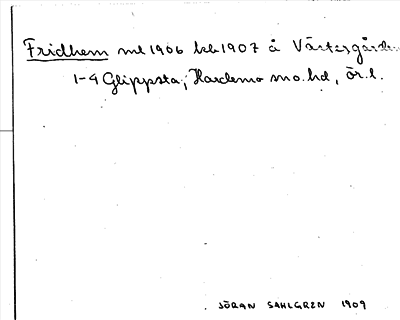 Fridhem ml 1906 kb 1907 å
1-4 Glippsta, Hardemo sn o. hd, ör. l.
JÖRAN SAHLGREN 1909